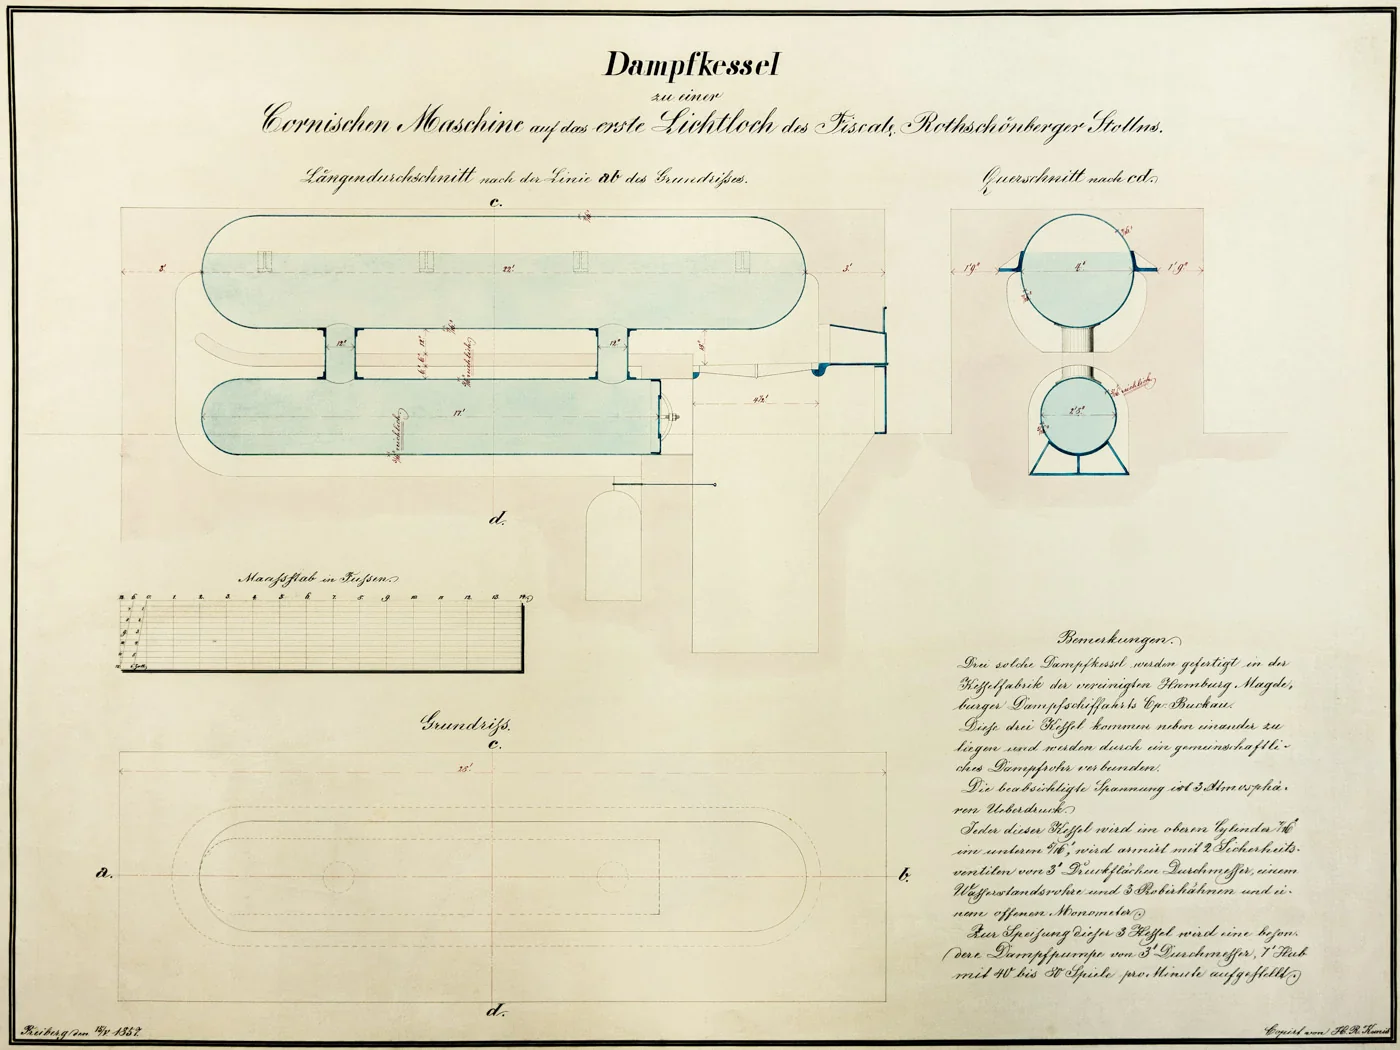 Dampfkessel
zu einer
Cornischen Maschine auf das erste Lichtloch des Fiscal. Rothschönberger Stollns.
Längendurchschnitt nach der Linie ab des Grundrißes.
Querschnitt nach cd.
c.
3'
22'
3'
1' 9"
4'
1' 9"
12"
12"
18"
4½'
17'
2' 8"
d.
Maaßstab in Fußen.
12 6 0 1 2 3 4 5 6 7 8 9 10 11 12 13 14
Grundriß.
c.
28'
a.
b.
d.
Bemerkungen.
Drei solche Dampfkessel werden gefertigt in der
Keßelfabrik der vereinigten Hamburg Magde,
burger Dampfschiffahrts Cp. Buckau.
Diese drei Keßel kommen neben einander zu
liegen und werden durch ein gemeinschaftli-
ches Dampfrohr verbunden.
Die beabsichtigte Spannung ist 3 Atmosphä-
ren Ueberdruck.
Jeder dieser Keßel wird im oberen Cylinder 7/16"
im unteren 5/16", wird armirt mit 2 Sicherheits-
ventilen von 3" Druckflächen Durchmeßer, einem
Waßerstandsrohre und 3 Probirhähnen und ei-
nem offenen Monometer.
Zur Speisung dieser 3 Keßel wird eine beson-
dere Dampfpumpe von 3" Durchmeßer, 7" Hub
mit 40 bis 80 Spiele pro Minute aufgestellt.
Freiberg den 1857.
Copirt von H. R. Kunis